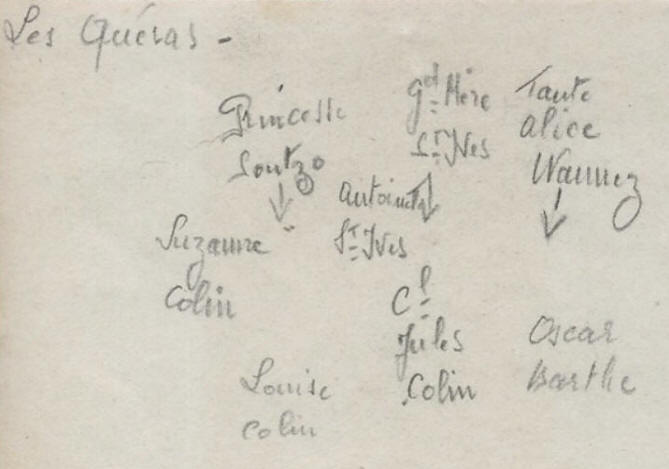 Les Quéras -
Princesse
Soutzo
Gd Mère
St Yves
Tante
Alice
Wannez
Antoinette
St Yves
Suzanne
Colin
Cl
Jules
Colin
Oscar
Barthe
Louise
Colin